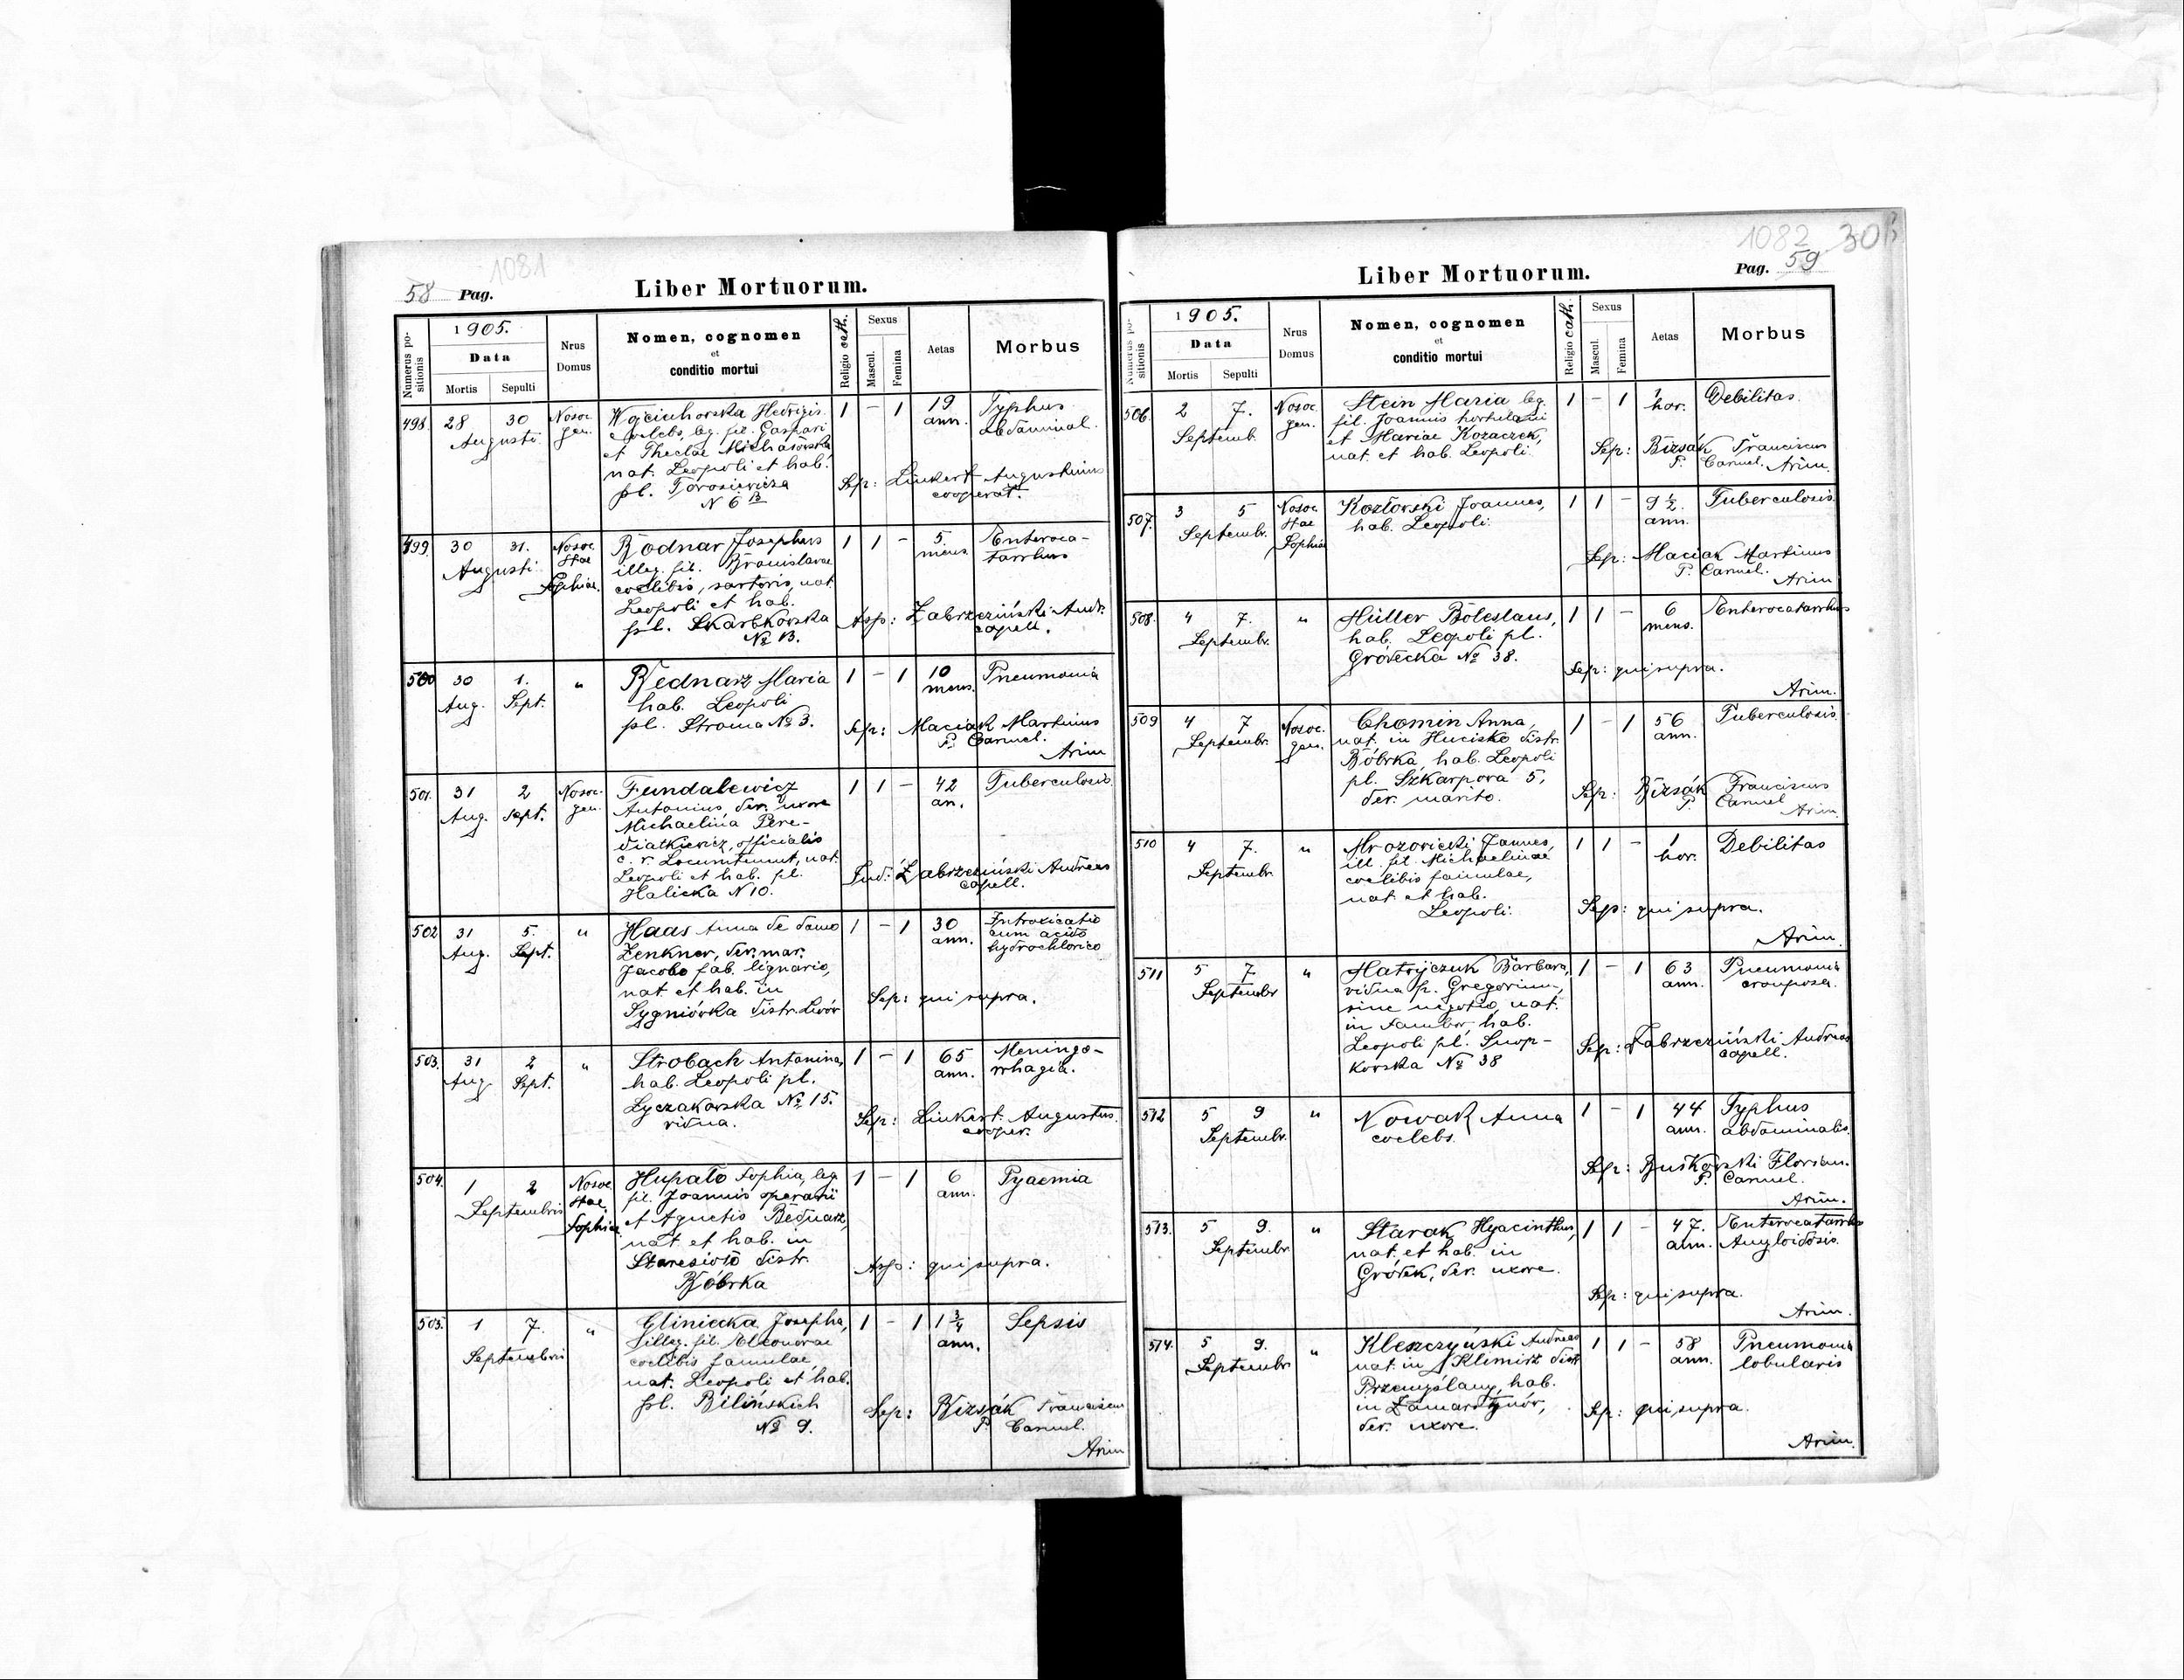 1081
58 Pag.
Liber Mortuorum.
Numerus positionis
1905.
Data
Mortis
Sepulti
Nrus Domus
Nomen, cognomen
et
conditio mortui
Religio cath.
Sexus
Mascul.
Femina
Aetas
Morbus
498. 28 30 Nosoc. Wojciechowska Hedvigis 1 – 1 19 Typhus
Augusti gen. coelebs, leg. fil. Gaspari ann. abdominal.
et Theclae
nat. Leopoli et hab.
pl. Torosiewicza Sep: Linkert Augustinus
N 6 B cooperat.
499. 30 31. Nosoc. Bodnar Josephus 1 1 – 5 Enteroca-
Augusti Stae illeg. fil. Bronislavae mens. tarrhus
Sophiae coelibis, sartoris, nat.
Leopoli et hab.
pl. Skarbkowska Asp: Zabrzeziński Andr.
No 13. capell.
500 30 1. " Bednarz Maria 1 – 1 10 Pneumonia
Aug. Sept. hab. Leopoli mens.
pl. Stroma No 3. Sep: Maciak Martinus
P. Carmel.
Arim
501. 31 2 Nosoc. Fundalewicz 1 1 – 42 Tuberculosis
Aug. Sept. gen. Antonius, der. uxore an.
Michaelina Pere-
diatkiewicz, officialis
c. r. Locumtenent, nat.
Leopoli et hab. pl. Ind: Zabrzeziński Andreas
Halicka N 10. capell.
502 31 5. " Haas Anna de domo 1 – 1 30 Intoxicatio
Aug. Sept. Zenkner, der. mar. ann. cum acido
Jacobo fab. lignario, hydrochlorico
nat. et hab. in Sep: qui supra.
Sygniówka distr. Lwów
503. 31 2 " Strobach Antonina, 1 – 1 65 Meningo-
Aug. Sept. hab. Leopoli pl. ann. rrhagia.
Lyczakowska No 15.
vidua. Sep: Linkert Augustus
cooper.
504. 1 2 Nosoc. Hupało Sophia, leg. 1 – 1 6 Pyaemia
Septembris Stae fil. Joannis operarii ann.
Sophiae et Agnetis Bednarz,
nat. et hab. in
Staresioło distr. Asp: qui supra.
Bóbrka
505. 1 7. " Gliniecka Josepha, 1 – 1 1 3/4 Sepsis
Septembris illeg. fil. Eleonorae ann.
coelibis famulae,
nat. Leopoli et hab.
pl. Bilińskich Sep: Bizsák Franciscus
No 9. P. Carmel.
Arim
1082 30
Pag. 59
Liber Mortuorum.
Numerus positionis
1905.
Data
Mortis
Sepulti
Nrus Domus
Nomen, cognomen
et
conditio mortui
Religio cath.
Sexus
Mascul.
Femina
Aetas
Morbus
506. 2 7. Nosoc. Stein Maria leg. 1 – 1 1 Debilitas.
Septemb. gen. fil. Joannis hortulani hor.
et Mariae Kozaczek, Sep: Bizsák Franciscus
nat. et hab. Leopoli. P. Carmel. Arim.
507. 3 5 Nosoc. Kozłowski Joannes, 1 1 – 9 1/2 Tuberculosis
Septembr. Stae hab. Leopoli. ann.
Sophiae Sep: Maciak Martinus
P. Carmel.
Arim
508. 4 7. " Müller Boleslaus, 1 1 – 6 Enterocatarrhus
Septembr. hab. Leopoli pl. mens.
Gródecka No 38. Sep: qui supra.
Arim.
509 4 7 Nosoc. Chomin Anna, 1 – 1 56 Tuberculosis.
Septembr. gen. nat. in Hucisko distr. ann.
Bóbrka, hab. Leopoli
pl. Szkarpowa 5, Sep: Bizsák Franciscus
der. marito. P. Carmel
Arim.
510 4 7. " Mrozowicki Joannes, 1 1 – 1 Debilitas
Septembr. ill. fil. Michaelinae hor.
coelibis famulae,
nat. et hab.
Leopoli. Sep: qui supra.
Arim.
511 5 7. " Matryczuk Barbara, 1 – 1 63 Pneumonia
Septembr vidua p. Gregorium, ann. crouposa.
sine negotio, nat.
in Sambor, hab.
Leopoli pl. Snop- Sep: Zabrzeziński Andreas
kowska No 38 capell.
512 5 9 " Nowak Anna 1 – 1 44 Typhus
Septembr. coelebs. ann. abdominalis.
Sep: Florian.
P. Carmel.
Arim.
513. 5 9. " Starak Hyacinthus, 1 1 – 47. Enterocatarrhus
Septembr. nat. et hab. in ann. Amyloidosis.
Gródek, der. uxore.
Sep: qui supra.
Arim.
514. 5 9. " Kleszczyński Andreas 1 1 – 58 Pneumonia
Septembr nat. in Klimisz distr. ann. lobularis
Przemyślany, hab.
in Zamarstynów, Sep: qui supra.
der. uxore.
Arim.